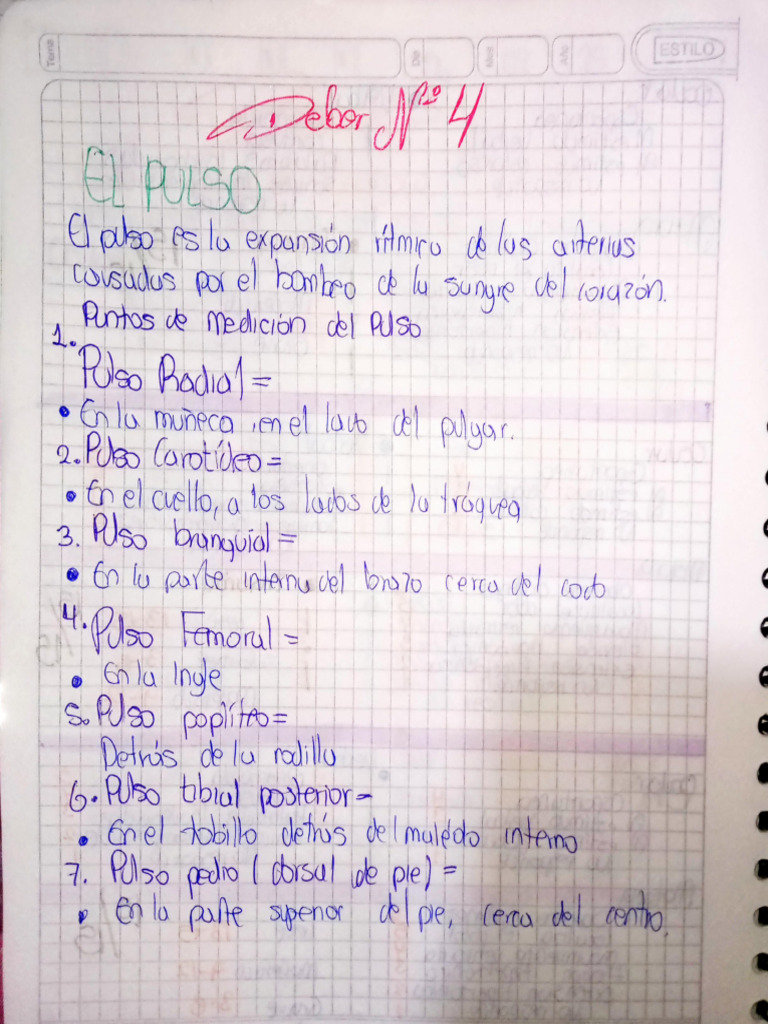 Tema
Día
Mes
Año
ESTILO
Deber Nº 4
EL PULSO
El pulso es la expansión rítmica de las arterias
causadas por el bombeo de la sangre del corazón.
Puntos de medición del Pulso
1. Pulso Radial =
• En la muñeca, en el lado del pulgar.
2. Pulso Carotídeo =
• En el cuello, a los lados de la tráquea
3. Pulso branquial =
• En la parte interna del brazo cerca del codo
4. Pulso Femoral =
• En la Ingle
5. Pulso poplíteo =
Detrás de la rodilla
6. Pulso tibial posterior =
• En el tobillo detrás del maléolo interno
7. Pulso pedio (dorsal de pie) =
• En la parte superior del pie, cerca del centro.